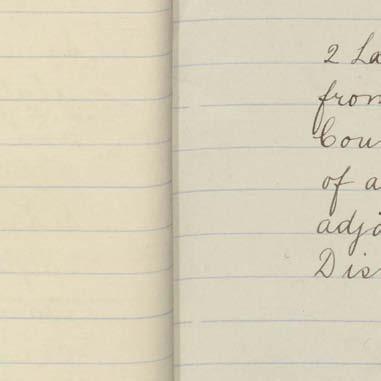 2 La
from
Cou
of a
adja
Dis